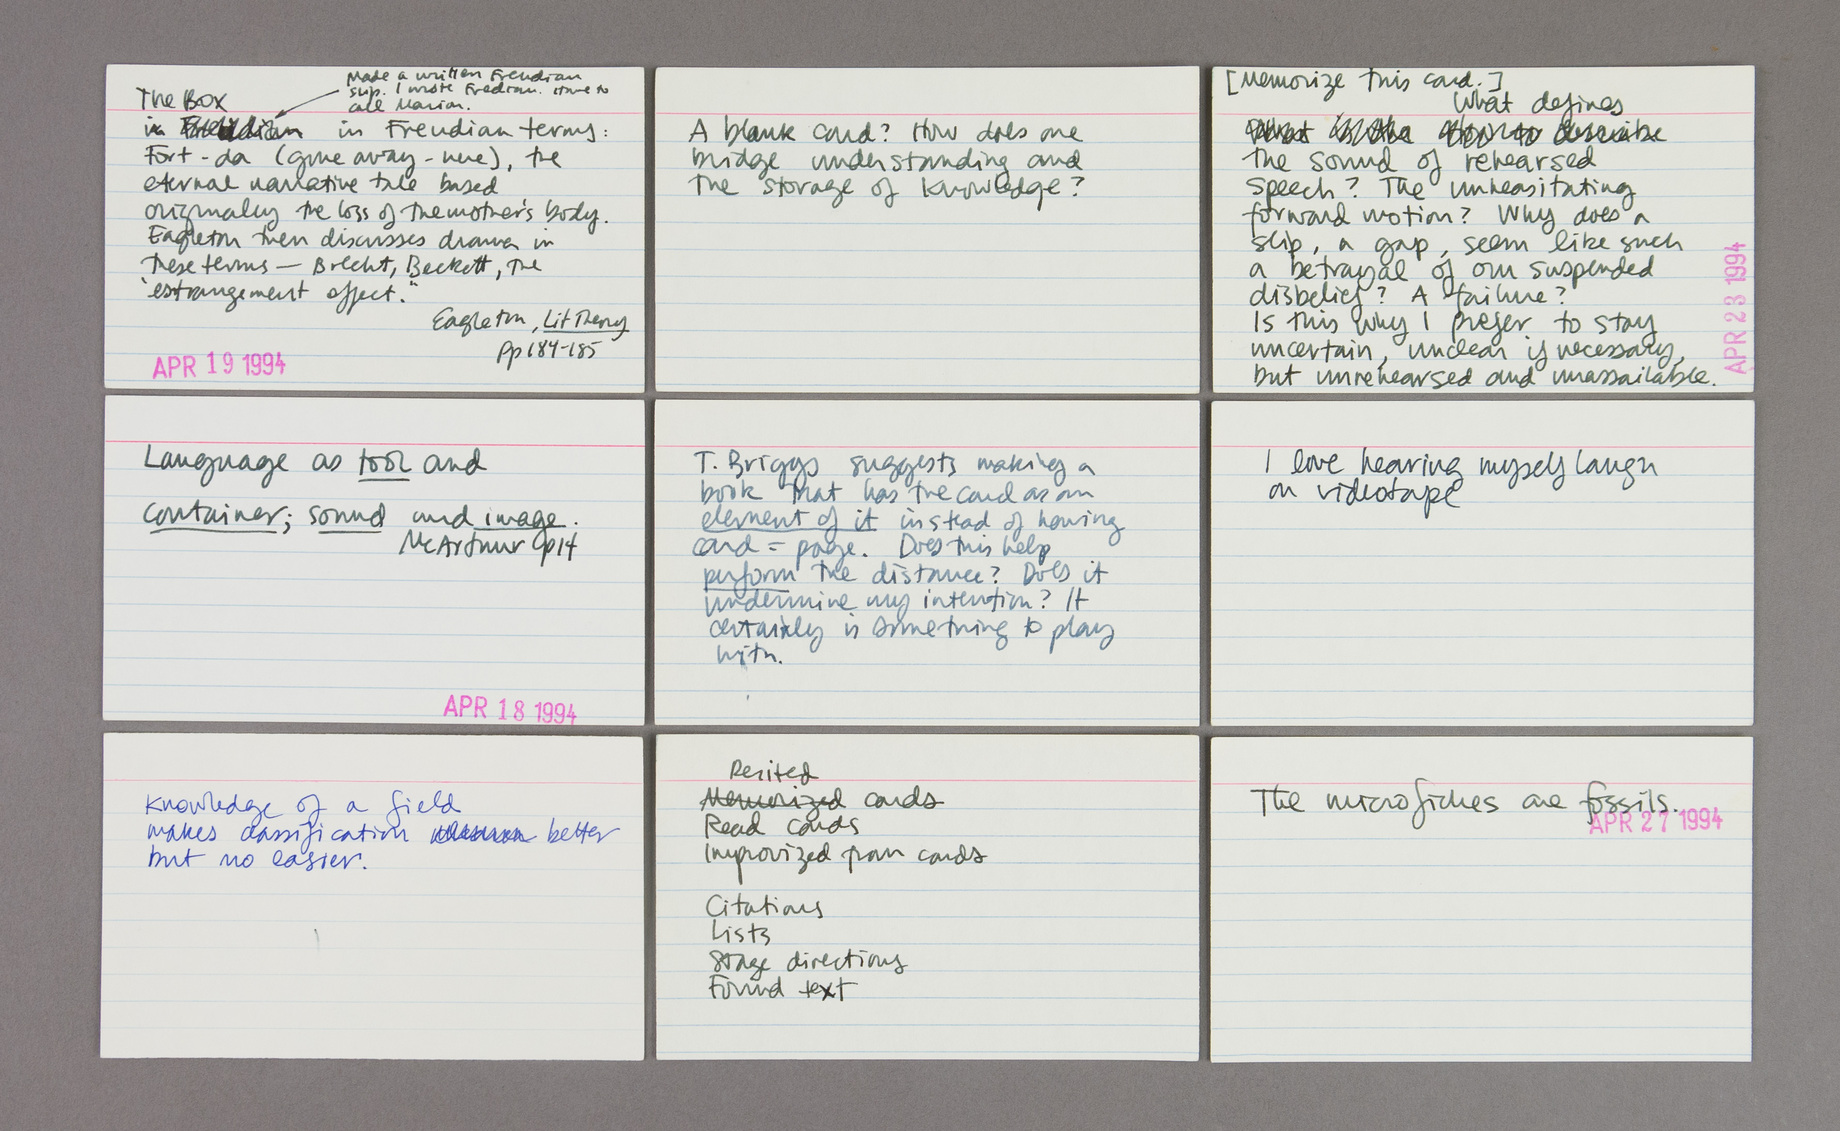 Made a written Freudian
slip. I wrote Fredian. Have to
call Marian.
The Box
in Freudian in Freudian terms:
Fort-da (gone away - here), the
eternal narrative tale based
originally the loss of the mother's body.
Eagleton then discusses drama in
these terms — Brecht, Beckett, the
"estrangement effect."
Eagleton, Lit Theory
pp 184-185
APR 19 1994
A blank card? How does one
bridge understanding and
the storage of knowledge?
[Memorize this card.]
What defines
the sound of rehearsed
speech? The unheasitating
forward motion? Why does a
slip, a gap, seem like such
a betrayal of our suspended
disbelief? A failure?
Is this why I prefer to stay
uncertain, unclear if necessary,
but unrehearsed and unassailable.
APR 23 1994
Language as tool and
container; sound and image.
McArthur p14
APR 18 1994
T. Briggs suggests making a
book that has the card as an
element of it instead of having
card = page. Does this help
perform the distance? Does it
undermine my intention? It
certainly is something to play
with.
I love hearing myself laugh
on videotape
Knowledge of a field
makes classification better
but no easier.
Recited
Memorized cards
Read cards
Improvized from cards
Citations
Lists
Stage directions
Found text
The microfiches are fossils.
APR 27 1994